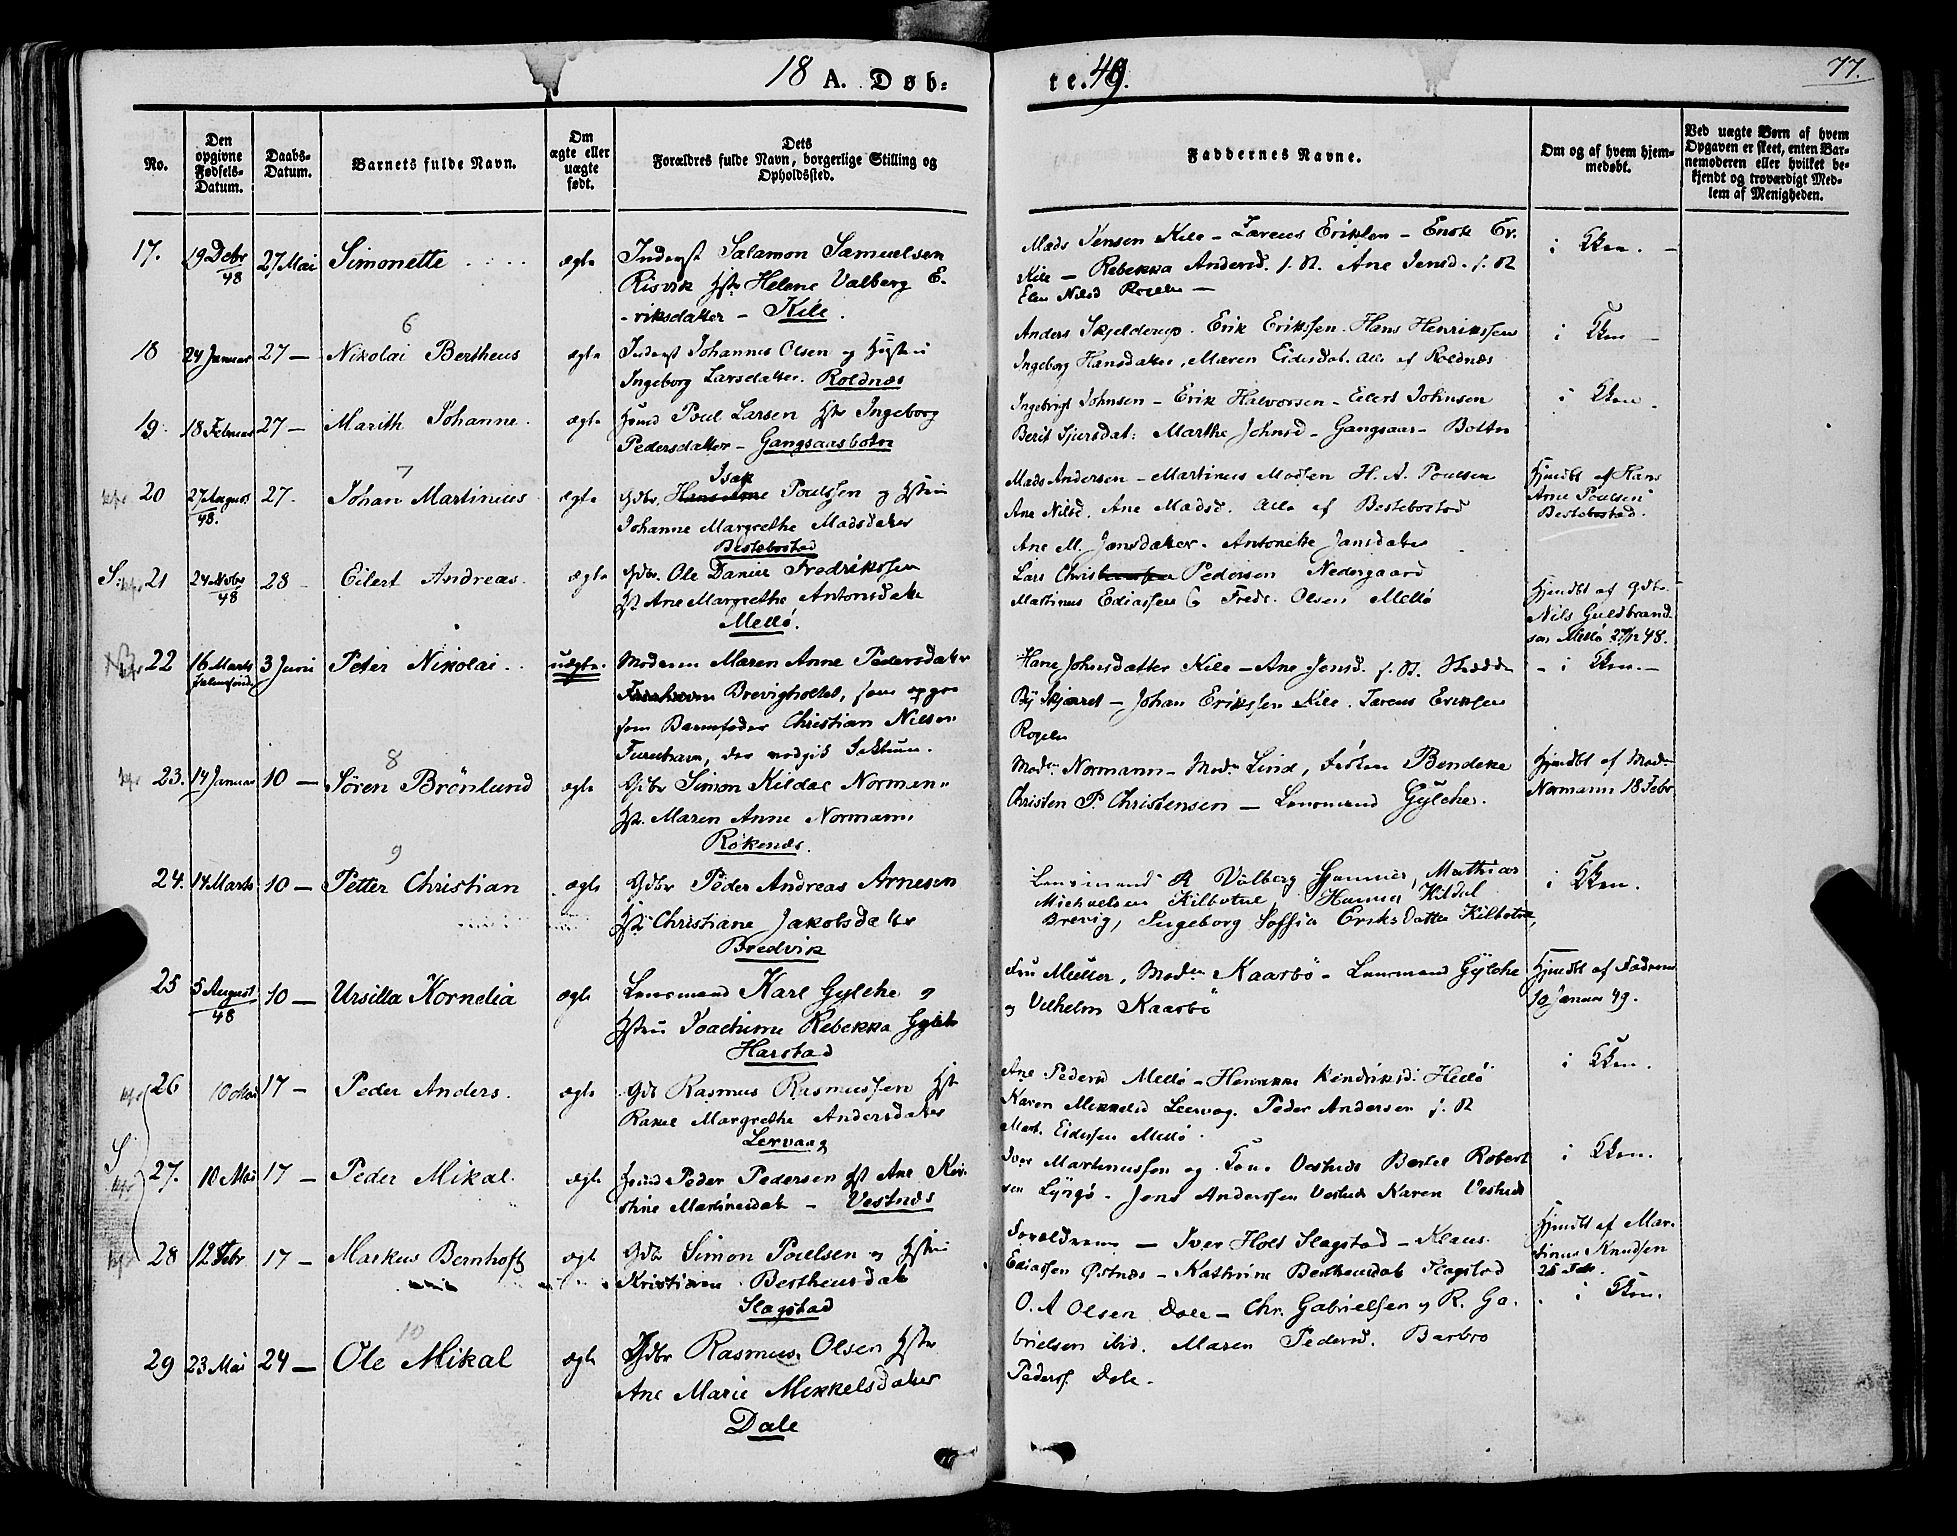 18 A. Døb-
te. 49.
77.
No.
Den opgivne Fødsels-Datum.
Daabs-Datum.
Barnets fulde Navn.
Om ægte eller uægte født.
Dets Forældres fulde Navn, borgerlige Stilling og Opholdssted.
Faddernes Navne.
Om og af hvem hjemmedøbt.
Ved uægte Børn af hvem Opgaven er skeet, enten Barnemoderen eller hvilket bekjendt og troværdigt Medlem af Menigheden.
17. 19 Debr 48 27 Mai Simonette ægte
Inderst Salamon Samuelsen
Risvik Hst Helene Valberg E-
riksdatter – Kile.
Mads Jensen Kile – Lareus Eriksen – Enok Er.
Kile – Rebekka Andersd. s. St. Ane Jensd. s. St
Elen Nilsd Rogeln –
i Kken. –
6
18 24 Januar 27 – Nikolai Bertheus ægte
Inderst Johannes Olsen og Hustru
Ingeborg Larsdatter. Roldnæs
Anders Skjelderup. Erik Erikssen. Hans Henrikssen
Ingeborg Hansdatter, Maren Eidisdat. alle af Roldnæs
i Kken –
19. 18 Februar 27 – Marith Johanne. ægte
Hsmd Poul Larsen Hst Ingeborg
Pedersdatter – Gangsaasbotn
Ingebrigt Johnsen – Erik Halvorsen – Eilert Johnsen
Berit Sjursdat: Marthe Johnsd – Gangsaas – Botten
i Kken.
7
20 27 August 48. 27. Johan Martinius ægte
Isak
Gdbr. Poulssen og Hstru
Johanne Margrethe Madsdatter
Bestebostad
Mads Andersen – Martinus Madsen H. A. Poulsen
Ane Nilsd. Ane Madsd. alle af Bestebostad
Hjmdbt af Hans
Arne Poulsen
Bestebostad.
S. 21 24 Novbr 48 28 – Eilert Andreas. ægte
Gdbr. Ole Daniel Fredrikssen
Hst Ane Margrethe Antonsdatter
Mellø.
Ane M. Jansdatter. Antonette Jansdatter
Lars Pedersen Nedergaard
Martinus Ediassen & Fredr. Olsen Mellø
Hjmdbt af Gdbr.
Nils Guldbrand
sen Mellø 27/12 48.
NB 22 16 Marts 3 Juni Peter Nikolai. uægte.
Moderen Maren Anne Pedersdatter
Brevigholtet, som opgav
som Barnefader Christian Nilsen
Furuhavn, der vedgik Faktum.
Hane Johnsdatter Kile – Ane Jonsd. s. St.
Skjæret – Johan Erikssen Kile. Lareus Eriksen
Rogeln
– i Kken. –
8
23. 14 Januar 10 – Søren Brönlund ægte
Gdbr Simon Kildal Normann
Hst. Maren Anne Normann
Rökenæs.
Mad. Normann – Mad. Lind, Frøken Bendeke
Christen P. Christensen – Lensmand Gylche.
Hjmdbt af Mad.
Normann 18 Febr
9
24. 14 Marts 10 – Petter Christian ægte
Gdbr Peder Andreas Arnesen
Hst Christiane Jakobsdatter
Bredvik
Lensmand R Valberg Mathias
Michaelsen Kilbotn, Kildal
Brevig, Ingeborg Soffia Eriksdatter Kilbotn,
i Kken.
25 5 August 48 10 – Ursilla Kornelia ægte
Lensmand Karl Gylche og
Hstru Joachime Rebekka Gylche
Harstad
Fru Müller, Mad. Kaarbö – Lensmand Gylche
og Vilhelm Kaarbö
Hjmdbt af Faderen
10 Januar 49.
26 10 Mai 17 – Peder Anders. ægte
Gdb Rasmus Rasmussen Hst
Rakel Margrethe Andersdatter
Lervaag
Ane Pedersd Mellø – Henrikke Hendriksd. Mellø
Karen Mikkelsd Leervag. Peder Andersen s. St
Mart. Eidessen Mellø.
i Kken.
S 27. 10 Mai 17 – Peder Mikal. ægte
Hsmd Peder Pedersen Hst Ane Kri-
stine Martinesdat – Vestnæs
Iver Martinussen og Kone Vestnæs Bertel Robert
sen Lysgö – Jens Anderssen Vestnæs Karen Vestnæs
i Kken.
28 12 Febr 17 – Markus Bernhoft ægte
Gdbr Simon Poulsen og Hstru
Kristianne Bertheusdat
Slagstad
Forældrene – Iver Holst Slagstad – Klaus
Ediassen Østnæs – Kathrine Bertheusdat Slagstad
Hjmdbt af Mar-
tinus Knudsen
25 Febr.
10
29 23 Mai 24 – Ole Mikal ægte
Gdbr Rasmus Olsen Hstr
Ane Marie Mikkelsdatter
Dale
O. A Olsen Dale – Chr. Gabrielsen og R. Ga-
brielsen ibid. Maren Pedersd. Barbro
Pedersd. Dale.
i Kken.